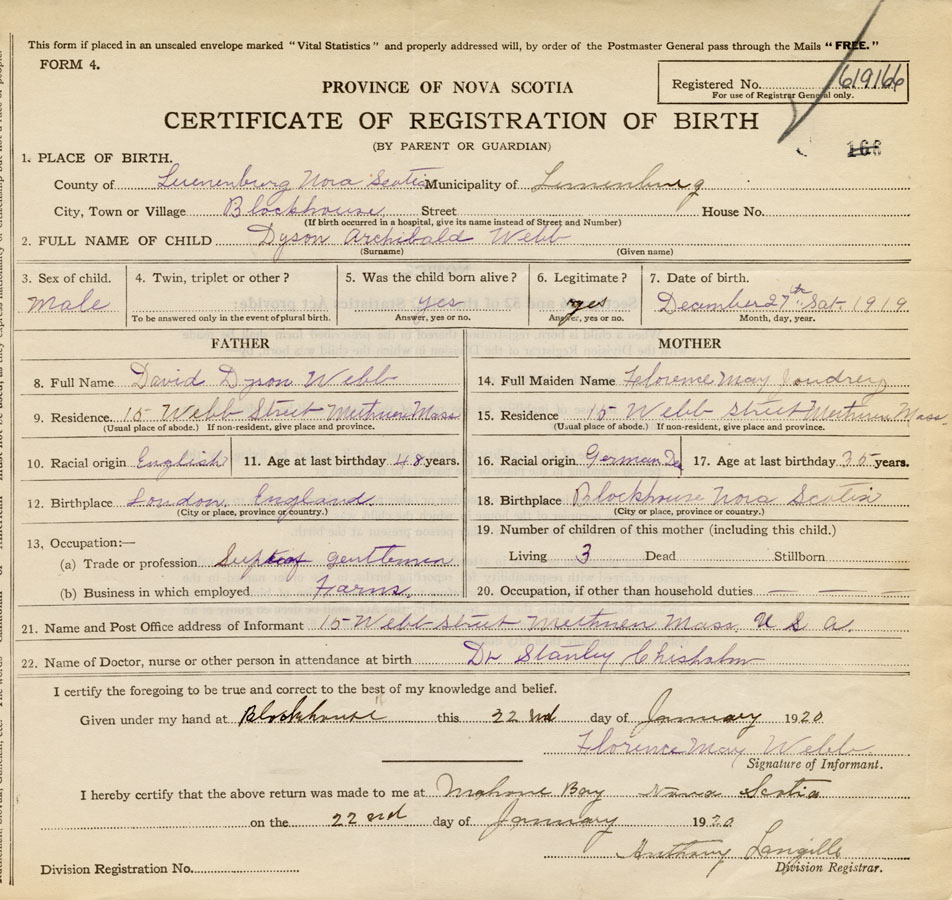 This form if placed in an unsealed envelope marked "Vital Statistics" and properly addressed will, by order of the Postmaster General pass through the Mails "FREE."
FORM 4.
PROVINCE OF NOVA SCOTIA
Registered No. 619166
For use of Registrar General only.
CERTIFICATE OF REGISTRATION OF BIRTH
(BY PARENT OR GUARDIAN)
168
1. PLACE OF BIRTH.
County of Luenenburg Nova Scotia Municipality of Lunenburg
City, Town or Village Blockhouse Street House No.
(If birth occurred in a hospital, give its name instead of Street and Number)
2. FULL NAME OF CHILD Dyson Archibald Webb
(Surname) (Given name)
3. Sex of child. 4. Twin, triplet or other? 5. Was the child born alive? 6. Legitimate? 7. Date of birth.
Male yes yes December 27th Sat 1919
To be answered only in the event of plural birth. Answer, yes or no. Answer, yes or no. Month, day, year.
FATHER
8. Full Name David Dyson Webb
9. Residence 15 Webb Street Methuen Mass
(Usual place of abode.) If non-resident, give place and province.
10. Racial origin English 11. Age at last birthday 48 years.
12. Birthplace London, England.
(City or place, province or country.)
13, Occupation:—
(a) Trade or profession Supt of gentlemen
(b) Business in which employed Farms.
MOTHER
14. Full Maiden Name Florence May Joudrey
15. Residence 15 Webb Street Methuen Mass.
(Usual place of abode.) If non-resident, give place and province.
16. Racial origin German 17. Age at last birthday 35 years.
18. Birthplace Blockhouse Nova Scotia
(City or place, province or country.)
19. Number of children of this mother (including this child.)
Living 3 Dead Stillborn
20. Occupation, if other than household duties — — —
21. Name and Post Office address of Informant 15 Webb Street Methuen Mass. U S A.
22. Name of Doctor, nurse or other person in attendance at birth Dr Stanley Chisholm
I certify the foregoing to be true and correct to the best of my knowledge and belief.
Given under my hand at Blockhouse this 22nd day of January 1920
Florence May Webb
Signature of Informant.
I hereby certify that the above return was made to me at Mahone Bay Nova Scotia
on the 22nd day of January 1920
Anthony Langille
Division Registrar.
Division Registration No.